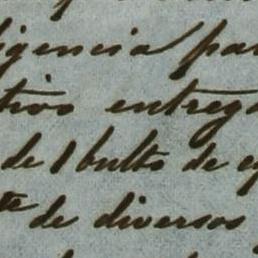 igencia par
tivo entrega
de 1 bulto de e
te de diversos